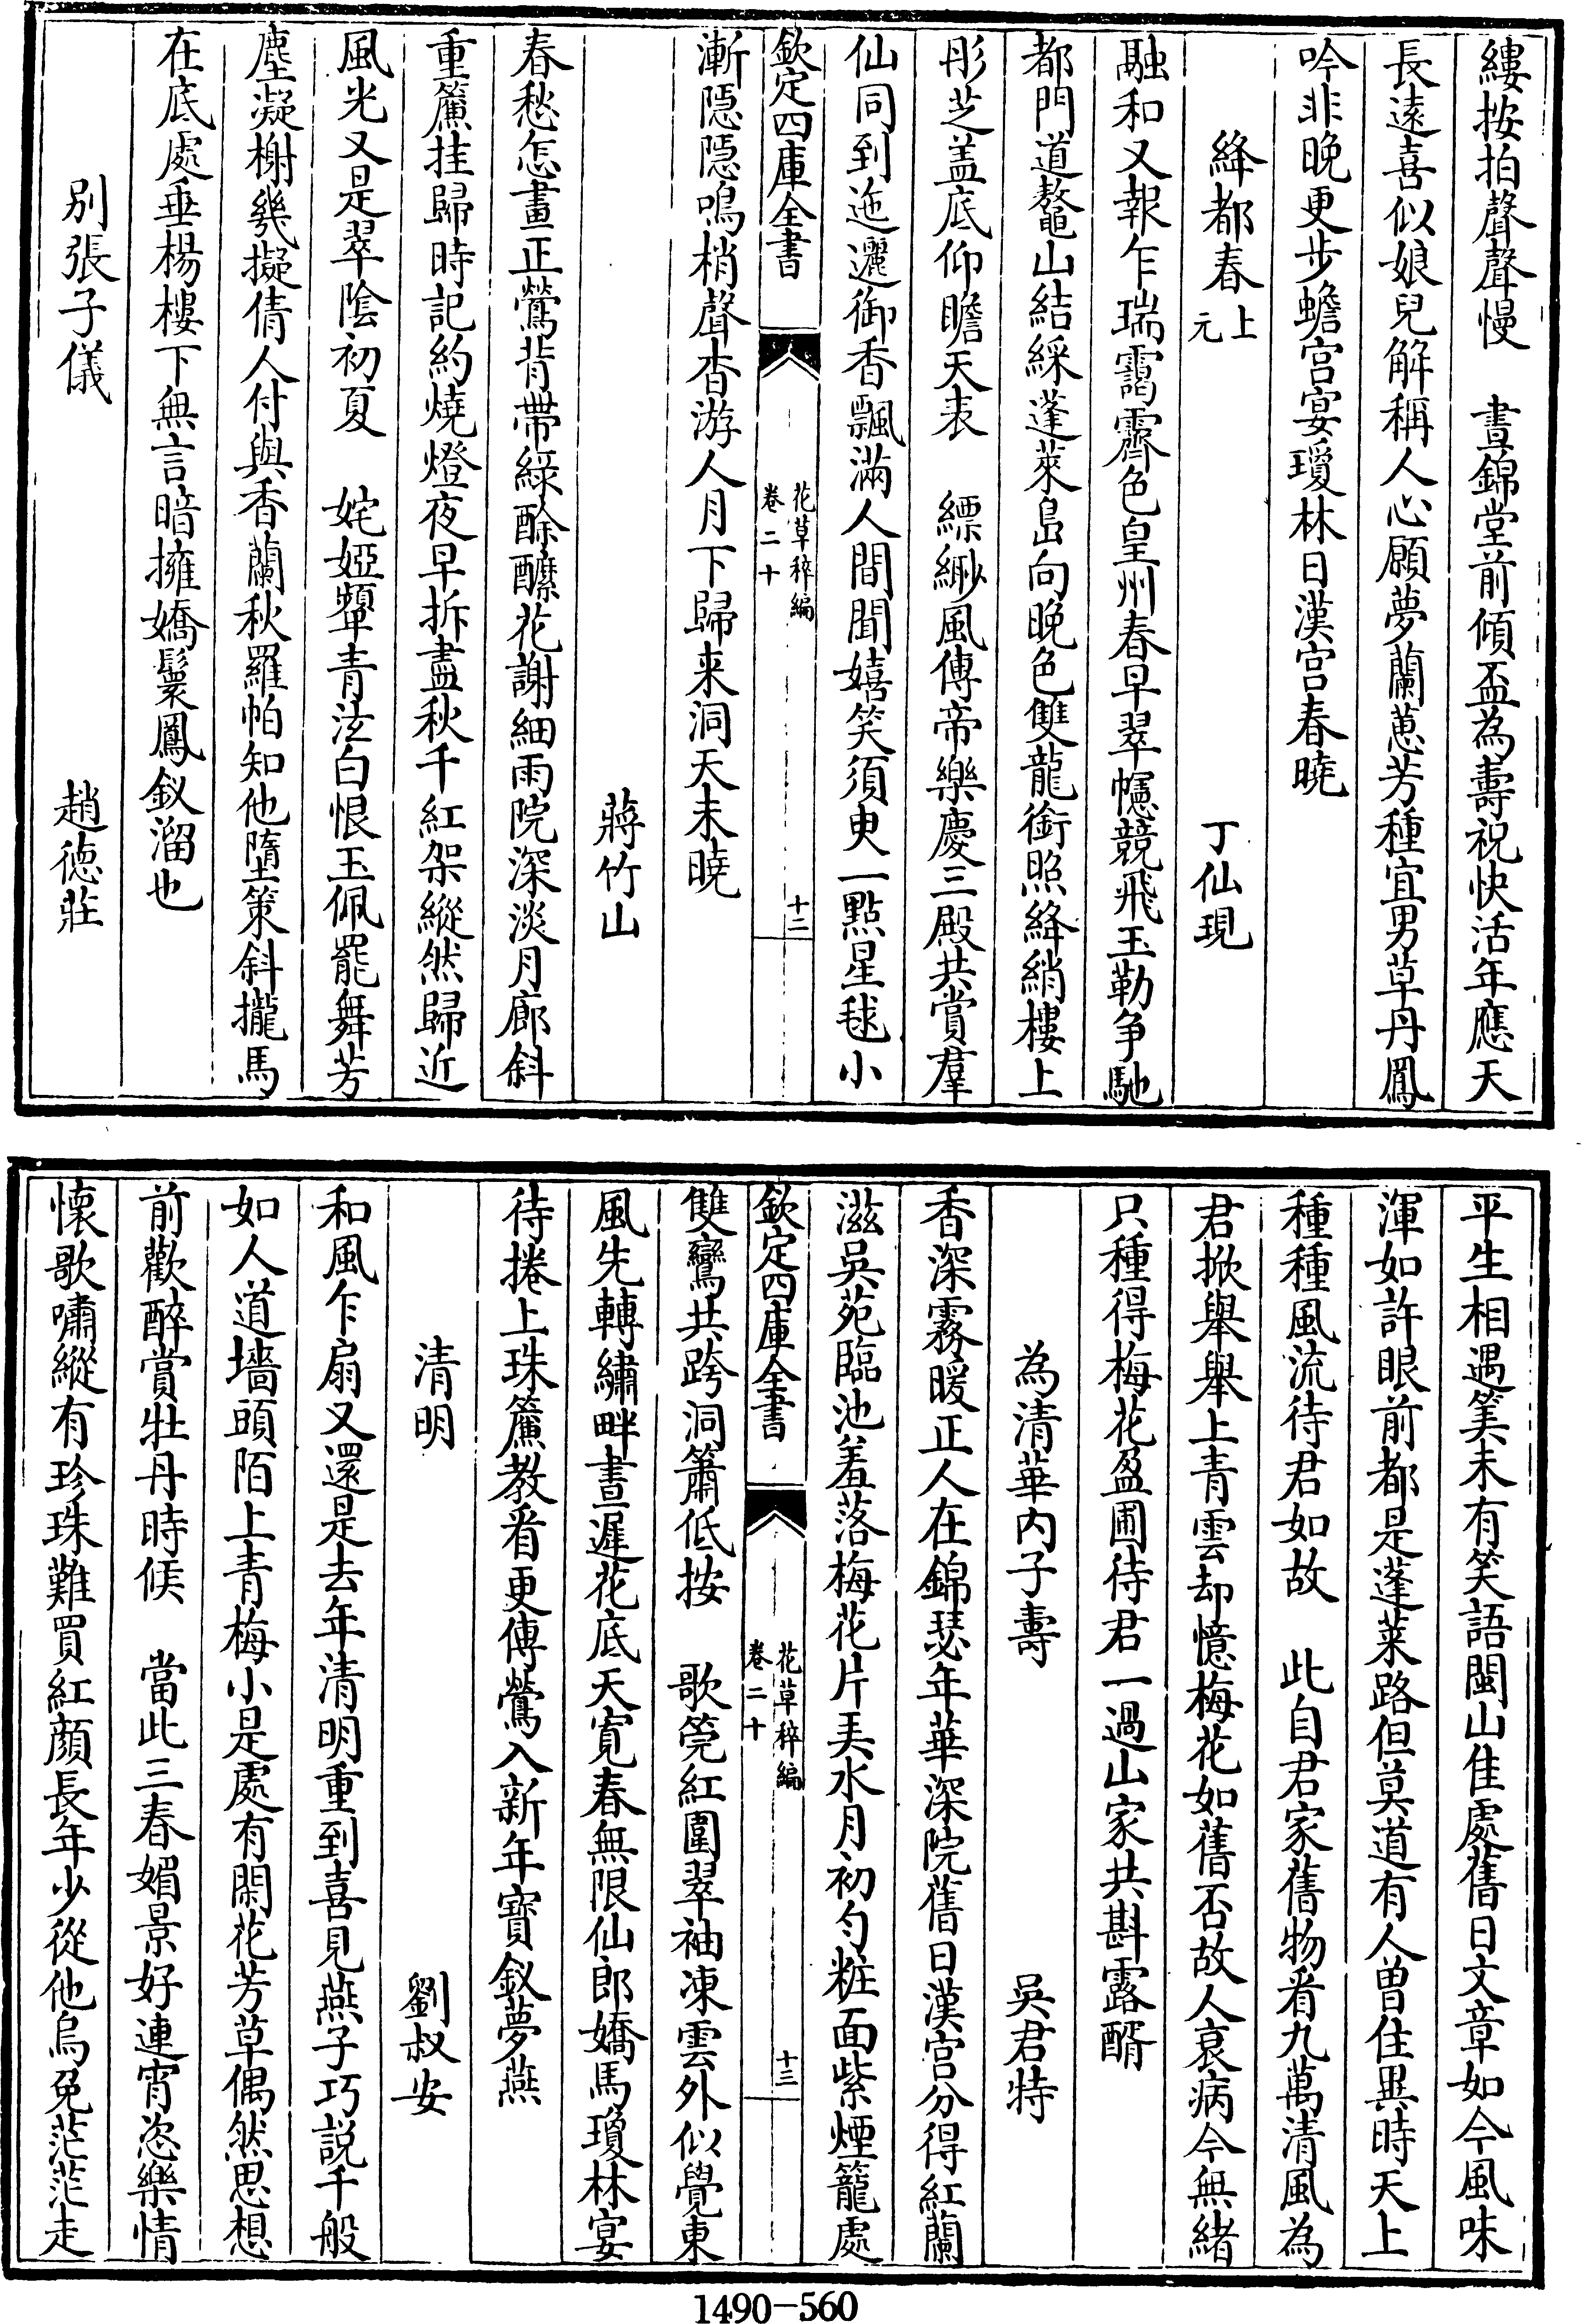 縷按拍聲聲慢　晝錦堂前傾盃為壽祝快活年應天
長遠喜似娘兒解稱人心願夢蘭蕙芳種宜男草丹鳳
吟非晚更步蟾宫宴瓊林日漢宫春曉
絳都春上元　丁仙現
融和又報乍瑞靄霽色皇州春早翠幰競飛玉勒爭馳
都門道鼇山結綵蓬萊島向晚色雙龍銜照絳綃樓上
彤芝蓋底仰瞻天表　縹緲風傳帝樂慶三殿共賞羣
仙同到迤邐御香飄滿人間聞嬉笑須臾一點星毬小
欽定四庫全書　花草稡編　卷二十　十二
漸隱隱鳴梢聲杳游人月下歸来洞天未曉
蔣竹山
春愁怎畫正鶯背帶綠酴醾花謝細雨院深淡月廊斜
重簾挂歸時記約燒燈夜早拆盡秋千紅架縱然歸近
風光又是翠陰初夏　姹婭顰青泫白恨玉佩罷舞芳
塵凝榭幾擬倩人付與香蘭秋羅帕知他墮策斜攏馬
在底處垂楊樓下無言暗擁嬌鬟鳳釵溜也
别張子儀　趙德莊
平生相遇筭未有笑語閩山佳處舊日文章如今風味
渾如許眼前都是蓬萊路但莫道有人曽住異時天上
種種風流待君如故　此自君家舊物看九萬清風為
君掀舉舉上青雲却憶梅花如舊否故人哀病今無緒
只種得梅花盈圃待君一過山家共斟露醑
為清華内子壽　吳君特
香深霧暖正人在錦瑟年華深院舊日漢宫分得紅蘭
滋吳苑臨池羞落梅花片弄水月初勻粧面紫煙籠處
欽定四庫全書　花草稡編　卷二十　十三
雙鸞共跨洞簫低按　歌筦紅圍翠袖凍雲外似覺東
風先轉繡畔晝遲花底天寛春無限仙郎嬌馬瓊林宴
待捲上珠簾教看更傳鶯入新年寶釵夢燕
清明　劉叔安
和風乍扇又還是去年清明重到喜見燕子巧説千般
如人道墻頭陌上青梅小是處有閑花芳草偶然思想
前歡醉賞牡丹時候　當此三春媚景好連宵恣樂情
懷歌嘯縱有珍珠難買紅顔長年少從他烏兔茫茫走
1490-560